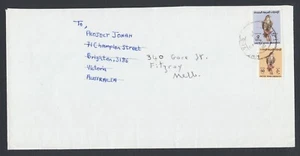 To,
PROJECT JONAH
71 Champion Street
Brighton, 3186
Victoria
AUSTRALIA
340 Gore St.
Fitzroy
Melb.